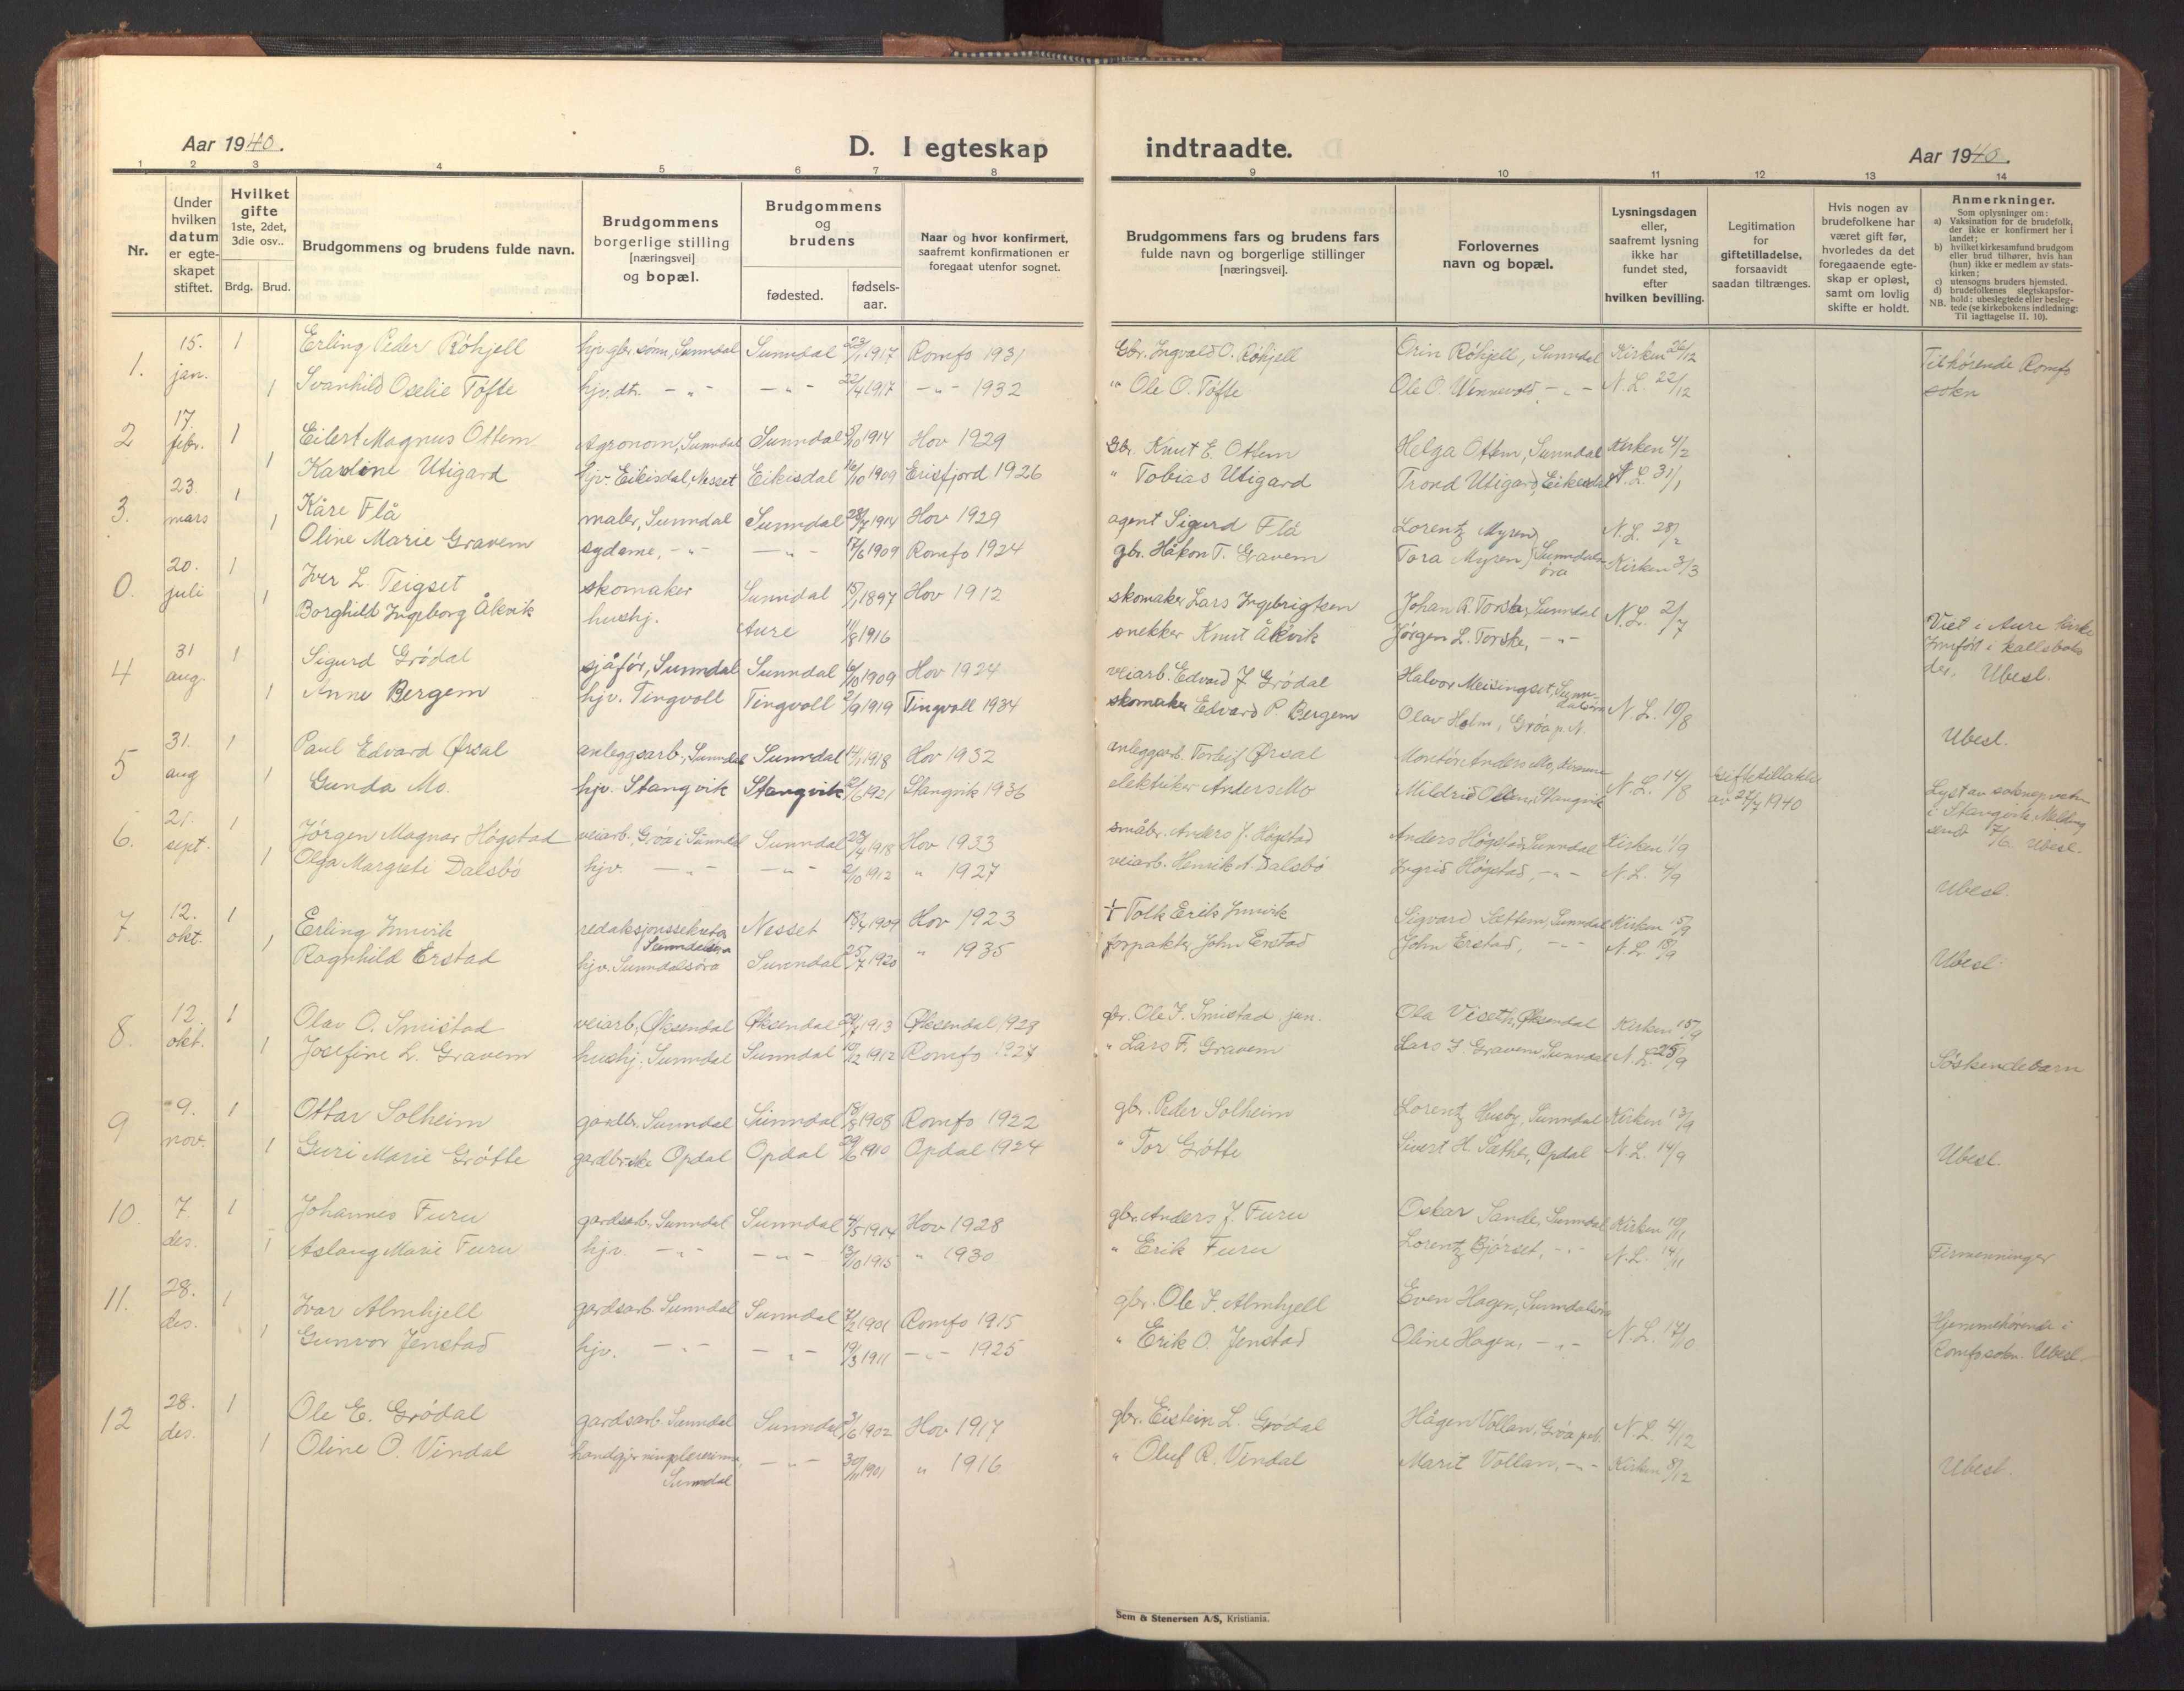 Aar 1940.
D. I egteskap
indtraadte.
Aar 1940.
1 2 3 4 5 6 7 8
9 10 11 12 13 14
Nr.
Under hvilken datum er egte-skapet stiftet.
Hvilket gifte
1ste, 2det, 3die osv..
Brdg. Brud.
Brudgommens og brudens fulde navn.
Brudgommens borgerlige stilling [næringsvei] og bopæl.
Brudgommens og brudens
fødested. fødsels-aar.
Naar og hvor konfirmert, saafremt konfirmationen er foregaat utenfor sognet.
Brudgommens fars og brudens fars fulde navn og borgerlige stillinger [næringsvei].
Forlovernes navn og bopæl.
Lysningsdagen eller, saafremt lysning ikke har fundet sted, efter hvilken bevilling.
Legitimation for giftetilladelse, forsaavidt saadan tiltrænges.
Hvis nogen av brudefolkene har været gift før, hvorledes da det foregaaende egte-skap er opløst, samt om lovlig skifte er holdt.
Anmerkninger.
Som oplysninger om:
a) Vaksination for de brudefolk, der ikke er konfirmert her i landet;
b) hvilket kirkesamfund brudgom eller brud tilhører, hvis han (hun) ikke er medlem av stats-kirken;
c) utensogns bruders hjemsted.
d) brudefolkenes slegtskapsfor-hold: ubeslegtede eller besleg-tede (se kirkebokens indledning: Til Iagttagelse II. 10).
NB.
1. 15. jan. 1 Erling Peder Röhjell hjv. gbr. sønn, Sunndal Sunndal 23/1 1917 Romfo 1931 Gbr. Ingvald O. Röhjell Röhjell, Sunndal Kirken 26/12 Tilhørende Romfo
1 Svanhild Oselie Töfte hjv. dtr. -"- -"- 22/4 1917 -"- 1932 " Ole O. Töfte Ole O. -"- N.L. 22/12 sokn
2 17. febr. 1 Eilert Magnus Ottem Agronom, Sunndal Sunndal 5/10 1914 Hov 1929 Gbr. Knut E. Ottem Helga Ottem, Sunndal Kirken 4/2
1 Karoline Utigard hjv. Eikisdal, Nesset Eikisdal 16/10 1909 Erisfjord 1926 " Tobias Utigard Trond Utigard, Eikisdal N.L. 31/1
3. 23. mars 1 Kåre Flå maler, Sunndal Sunndal 28/7 1914 Hov 1929 agent Sigurd Flå Lorentz Myren N.L. 28/2
1 Oline Marie Gravem sydame, -"- -"- 17/6 1909 Romfo 1924 gbr. Håkon T. Gravem Tora Myren Sunndalsöra Kirken 3/3
0. 20. juli 1 Iver L. Teigset skomaker Sunndal 15/1 1897 Hov 1912 skomaker Lars Ingebrigtsen Johan R. Torske, Sunndal N.L. 2/7
1 Borghild Ingeborg Åkvik hushj. Aure 11/8 1916 snekker Knut Åkvik Jørgen L. Torske, -"- Viet i Aure kirke
4 31 aug. 1 Sigurd Grödal sjåför, Sunndal Sunndal 6/10 1909 Hov 1924 veiarb. Edvard J Grödal Halvor Meisingset, Sunndalsöra Ubesl.
1 Anne Bergem hjv. Tingvoll Tingvoll 2/9 1919 Tingvoll 1934 skomaker Edvard P. Bergem Olav Holm, Gröa p.å. N.L. 10/8 Ubesl.
5 31. aug 1 Paul Edvard Ørsal anleggsarb., Sunndal Sunndal 14/1 1918 Hov 1932 anleggsarb. Torleif Ørsal Montör Anders Mo,
1 Gunda Mo. hjv. Stangvik Stangvik 1921 Stangvik 1936 elektriker Anders Mo Mildrid Olsen, Stangvik N.L. 14/8 Giftetillatelse av 1940 Lyst av soknepresten i Stangvik. Melding sendt 7/6. Ubesl.
6. 21. sept. 1 Jörgen Magnar Högstad veiarb. Gröa i Sunndal Sunndal 28/4 1918 Hov 1933 småbr. Anders J. Högstad Anders Högstad, Sunndal Kirken 1/9
1 Olga Margreti Dalsbö hjv. -"- -"- 2/10 1912 " 1927 veiarb. Henrik A Dalsbö Ingrid Högstad, -"- N.L. 4/9 Ubesl.
7. 12. okt. 1 Erling Innvik redaksjonssekretær Sunndalsöra Nesset 1909 Hov 1923 + Tolk Erik Innvik Sigvard Sættem, Sunndal Kirken 15/9
1 Ragnhild Erstad hjv. Sunndalsöra Sunndal 25/7 1920 " 1935 forpakter John Erstad John Erstad, -"- N.L. 18/9 Ubesl.
8. 12. okt. 1 Olav O. Smistad veiarb., Øksendal Øksendal 1913 Øksendal 1928 gbr. Ole F. Smistad jun. Ola Viseth, Øksendal Kirken 15/9
1 Josefine L. Gravem hushj. Sunndal Sunndal 10/12 1912 Romfo 1927 " Lars F. Gravem Lars J. Gravem, Sunndal N.L. 25/9 Söskendebarn
9 9. nov. 1 Ottar Solheim gardbr. Sunndal Sunndal 1908 Romfo 1922 gbr. Peder Solheim Lorentz Husby, Sunndal Kirken 13/9
1 Guri Marie Grötte Opdal Opdal 29/6 1910 Opdal 1924 " Tor Grötte Sivert H. Sæther, Opdal N.L. 14/9 Ubesl.
10. 7. des. 1 Johannes Furu gardsarb. Sunndal Sunndal 4/5 1914 Hov 1928 gbr. Anders J. Furu Oskar Sande, Sunndal Kirken 10/11
1 Aslaug Marie Furu hjv. -"- -"- 13/10 1915 " 1930 " Erik Furu Lorentz Björset, -"- N.L. 14/11 Firmenninger
11. 28. des. 1 Ivar Almhjell gardsarb. Sunndal Sunndal 7/2 1901 Romfo 1915 gbr. Ole J. Almhjell Even Hagen, Sunndalsöra Hjemmehörende i
1 Gunvor Jenstad hjv. -"- -"- 19/3 1911 -"- 1925 " Erik O. Jenstad Oline Hagen, -"- N.L. 17/10 Romfo sokn. Ubesl.
12 28. des. 1 Ole E. Grödal gardsarb. Sunndal Sunndal 3/6 1902 Hov 1917 gbr. Eistein L. Grödal Hågen Vollan, Gröa p.å. N.L. 4/12
1 Oline O. Vindal Sunndal -"- 30/11 1901 " 1916 " Oluf R. Vindal Marit Vollan, -"- Kirken 8/12 Ubesl.
Sem & Stenersen A/S, Kristiania.